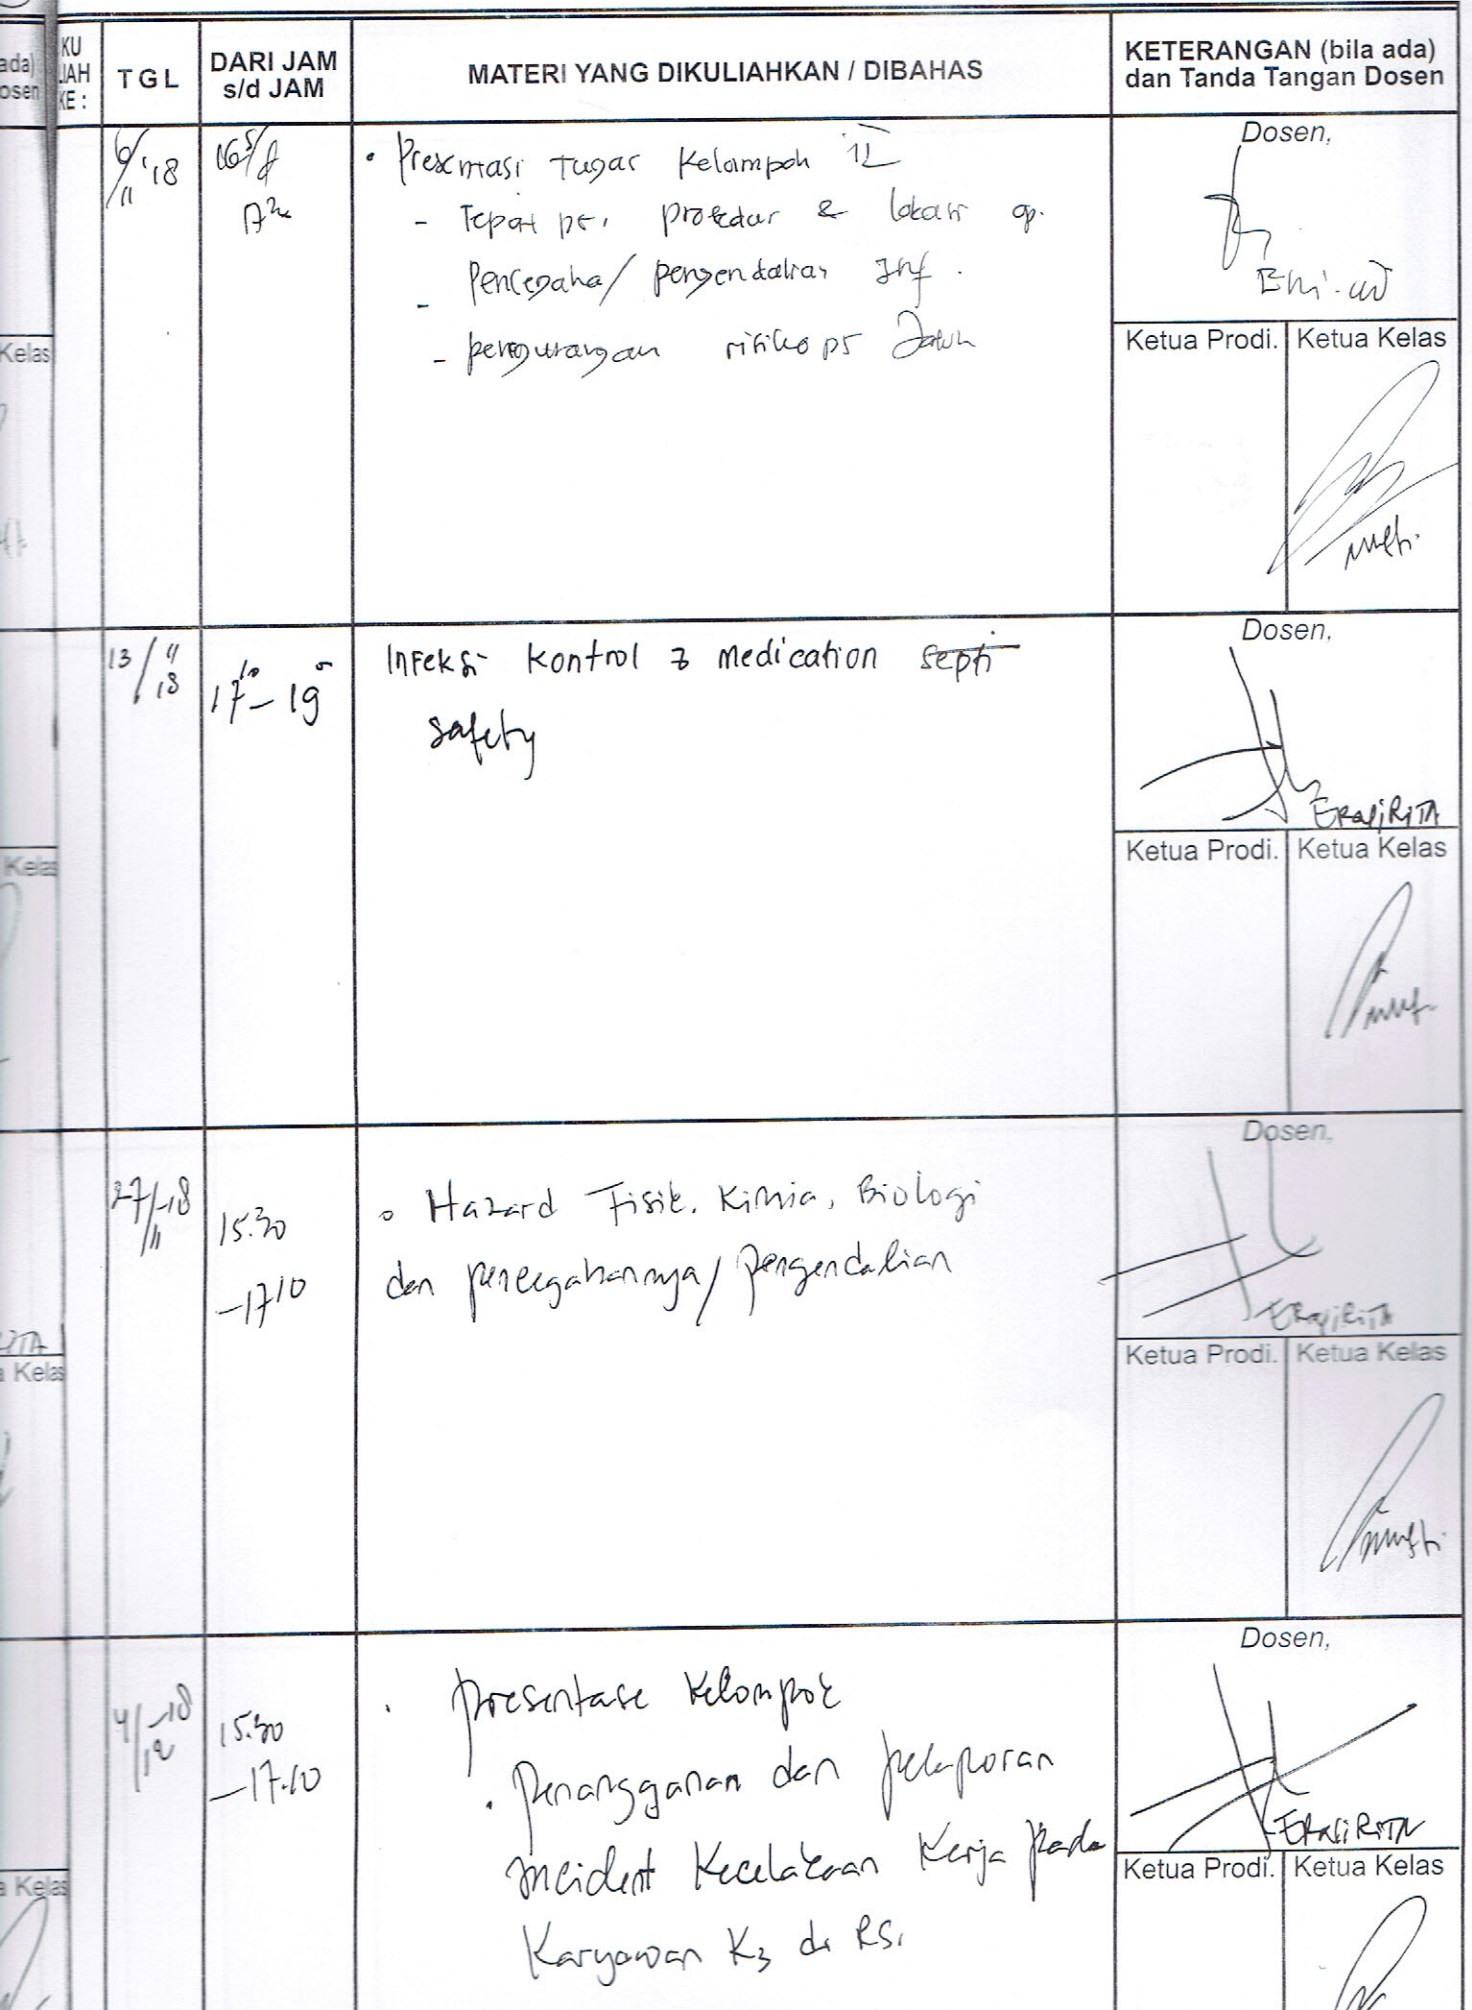 KU
LIAH
KE :
TGL
DARI JAM
s/d JAM
MATERI YANG DIKULIAHKAN / DIBAHAS
KETERANGAN (bila ada)
dan Tanda Tangan Dosen
ada)
osen
6/11 '18
• Presentasi Tugas Kelompok II
- Tepat ps, prosedur & lokasi op.
- Pencegaha/ pengendalian Inf.
- pengurangan risiko ps Jatuh
Dosen,
Ketua Prodi.
Ketua Kelas
Kelas
13/11 18
17 10 - 19
Infeksi Kontrol & medication septi
safety
Dosen,
ERAJIRITA
Ketua Prodi.
Ketua Kelas
Kelas
27/11-18
15.30
-17 10
o Hazard Fisik, Kimia, Biologi
dan pencegahannya/ pengendalian
Dosen,
ERAJIRITA
Ketua Prodi.
Ketua Kelas
a Kelas
4/12-18
15.30
-17.10
. presentase Kelompok
. Penangganan dan pelaporan
incident Kecelakaan Kerja pada
Karyawan K3 di RS.
Dosen,
ERAJIRITA
Ketua Prodi.
Ketua Kelas
a Kelas